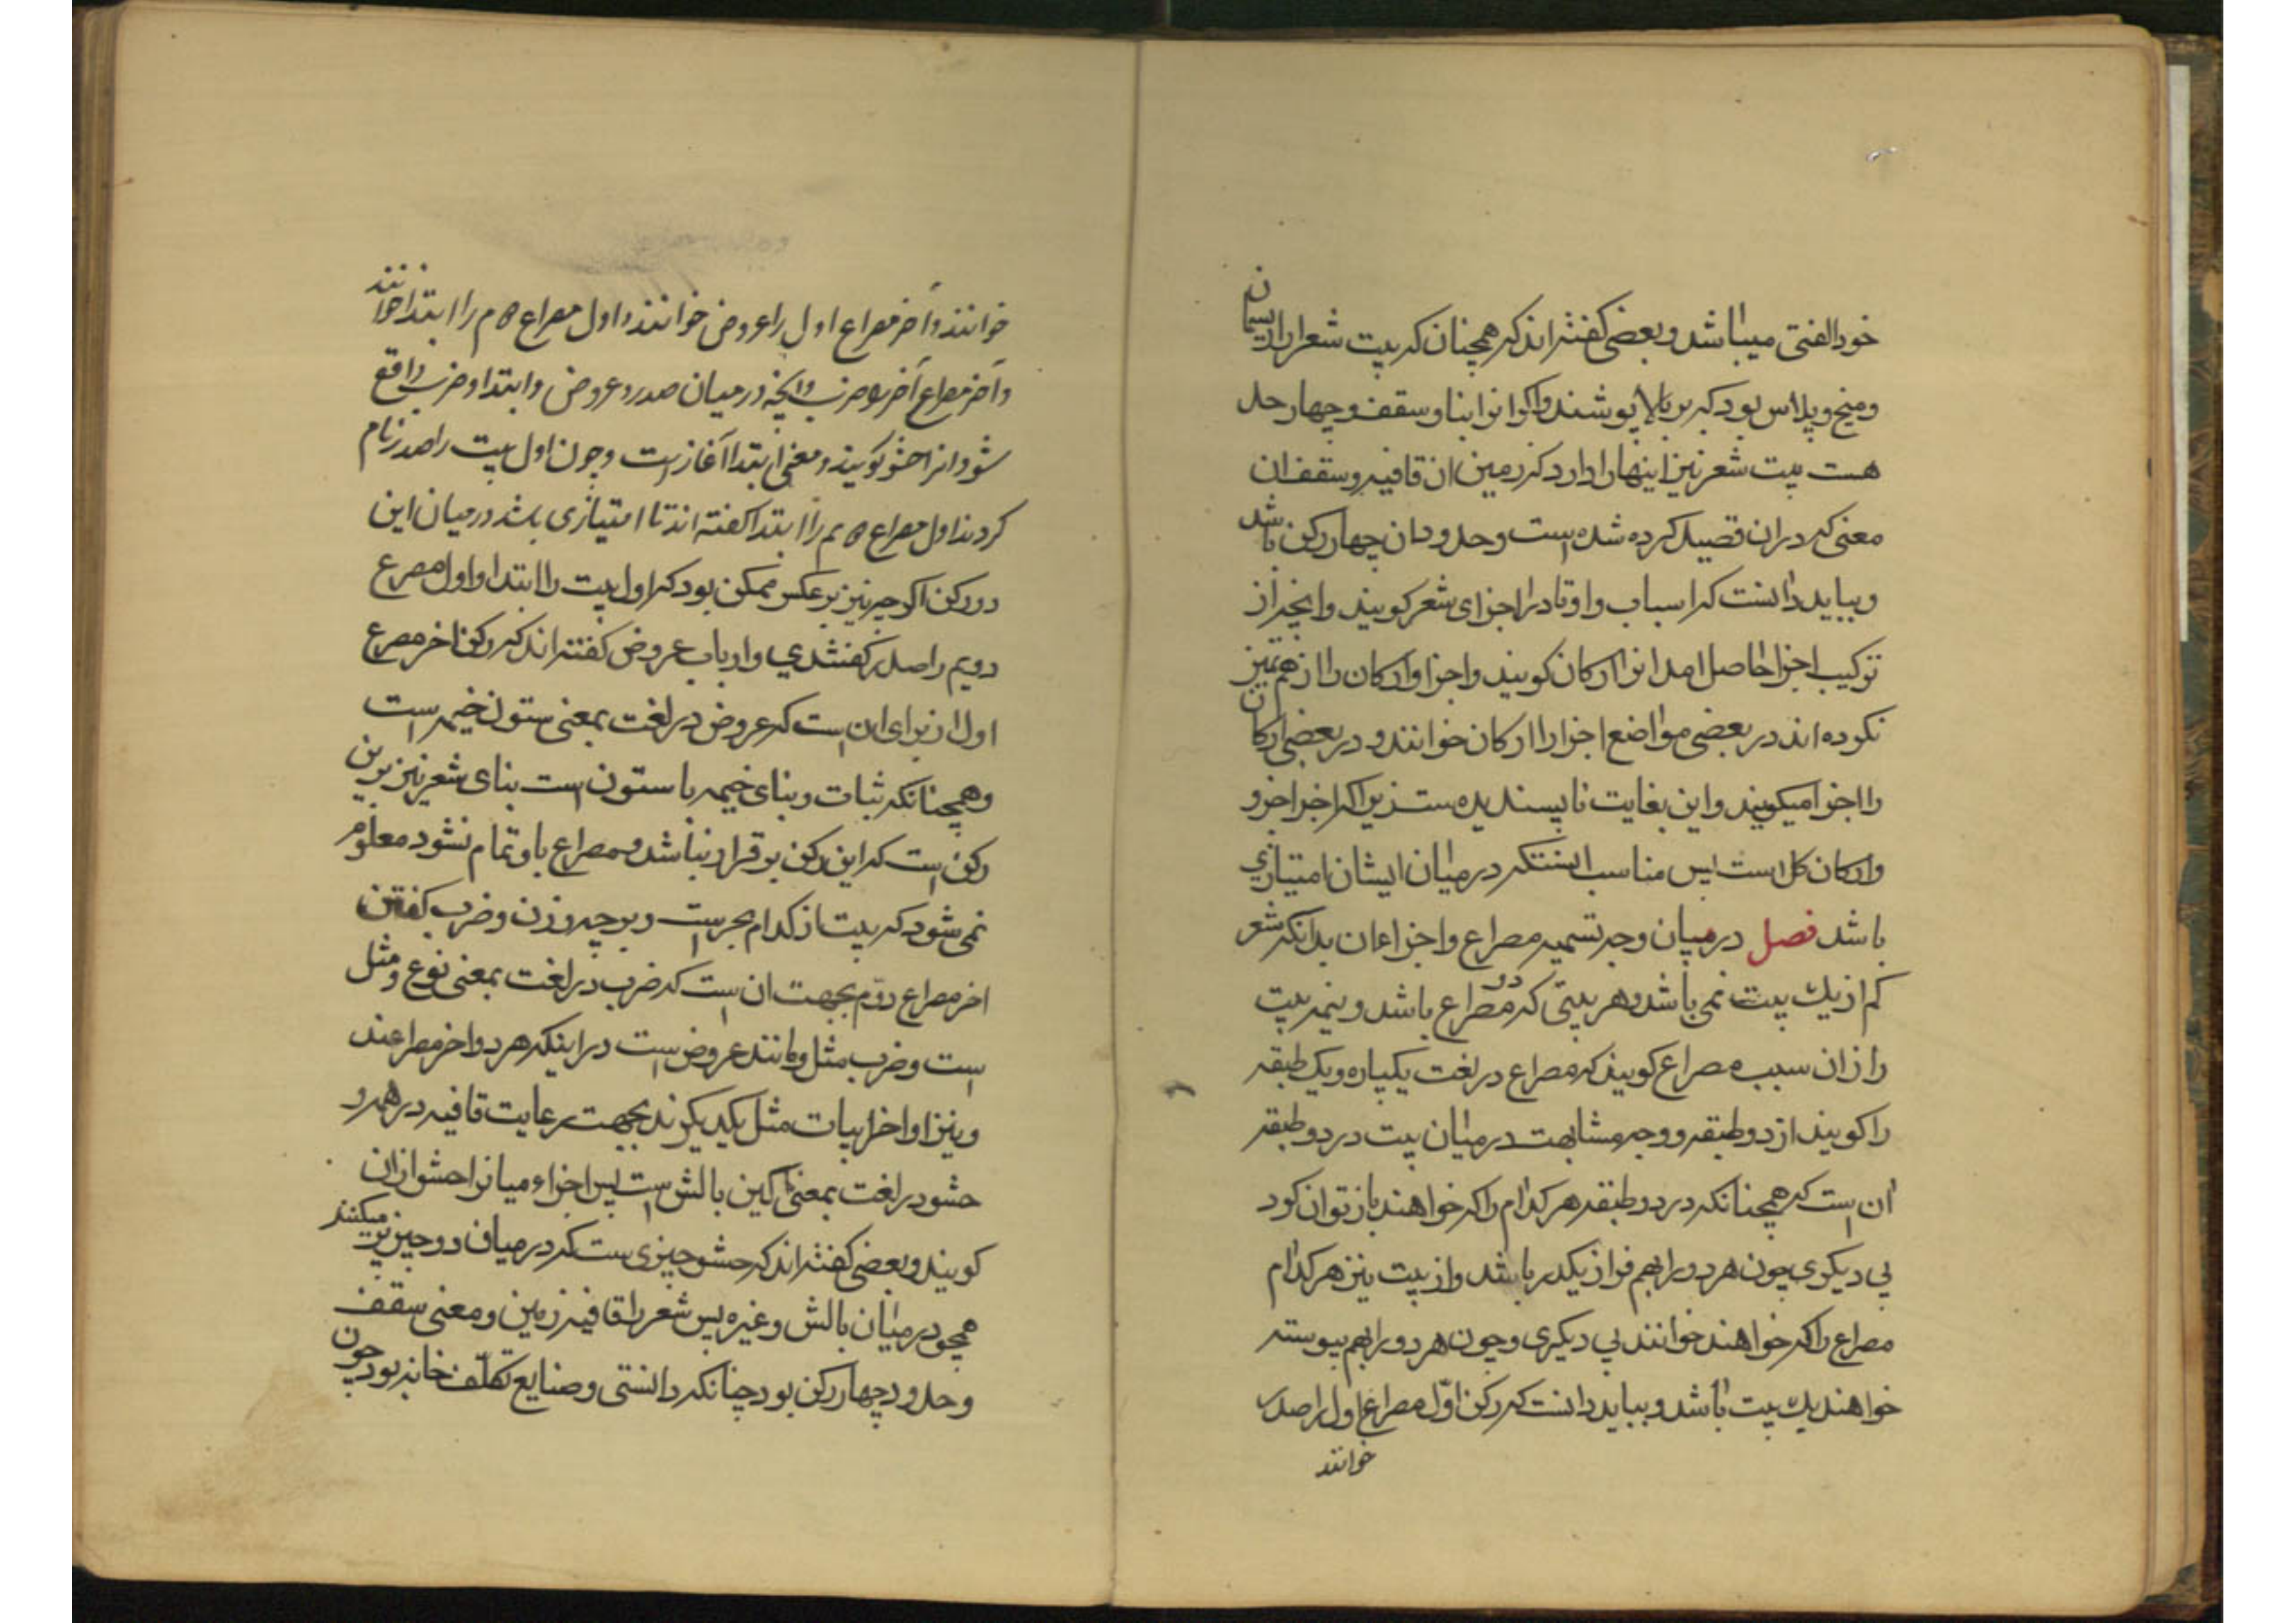 خود الفتی میباشد و بعضی کفته‌اند که همچنان که بیت شعر را ریسمان
و میخ و پلاس بود که بر بالا پوشند و اکر انرا بنا و سقف و چهار حد
هست بیت شعر نیز اینها را دارد که زمین ان قافیه و سقف ان
معنی که دران قصید کرده شده است و حدود ان چهار رکن باشد
و بباید دانست که اسباب و اوتاد را اجزای شعر کویند و انچه از
ترکیب اجزا حاصل امد انرا ارکان کویند و اجزا و ارکان را از هم تمیز
نکرده‌اند در بعضی مواضع اجزا را ارکان خوانند و در بعضی ارکان
را اجزا میکویند و این بغایت ناپسندیده ست زیرا که اجزا جزو
و ارکان کل است پس مناسب انستکه در میان ایشان امتیازی
باشد فصل در میان وجه تسمیه مصراع و اجزاء ان بدانکه شعر
کم از یک بیت نمی باشد و هر بیتی که دو مصراع باشد و نیمه بیت
را ازان سبب مصراع کویند که مصراع در لغت یکپاره و یک طبقه
را کویند از دو طبقه و وجه مشابهت در میان بیت در دو طبقه
ان است که همچنانکه در دو طبقه هر کدام را که خواهند باز توان کرد
بی دیکری چون هر دو را بهم فراز یکدر باشد و از بیت نیز هر کدام
مصراع را که خواهند خوانند بی دیکری و چون هر دو را بهم پیوسته
خواهند یک بیت باشد و بباید دانست که رکن اوّل مصراع اول را صدر
خوانند
خوانند و آخر مصراع اول را عروض خوانند و اول مصراع دوم را ابتدا خوانند
و آخر مصراع آخر را ضرب و انچه در میان صدر و عروض و ابتدا و ضرب واقع
شود انرا حشو کویند و معنی ابتدا آغاز است و چون اول بیت را صدر نام
کردند اول مصراع دوم را ابتدا کفته اند تا امتیازی باشد در میان این
دو رکن اکر چه نیز بر عکس ممکن بود که اول بیت را ابتدا و اول مصرع
دویم را صدر کفتندی و ارباب عروض کفته‌اند که رکن اخر مصرع
اول از برای ان است که عروض در لغت بمعنی ستون خیمه است
و همچنانکه ثبات و بنای خیمه با ستون است بنای شعر نیز برین
رکن است که این رکن برقرار نباشد و مصراع باو تمام نشود معلوم
نمی شود که بیت از کدام بحر است و بر چه وزن و ضرب کفتن
اخر مصراع دوّم بجهت ان است که ضرب در لغت بمعنی نوع و مثل
است و ضرب مثل و مانند عروض است در اینکه هر دو اخر مصراعند
و نیز اواخر ابیات مثل یکدیکرند بجهت رعایت قافیه در همه و
حشو در لغت بمعنی اکین بالش است پس اجزاء میانرا حشو ازان
کویند و بعضی کفته‌اند که حشو چیزی ست که در میان دو چیز پر میکنند
همچو در میان بالش و غیره پس شعر را قافیه زمین و معنی سقف
و حدود چهار رکن بود چنانکه دانستی و صنایع تکلّف خانه بود چون